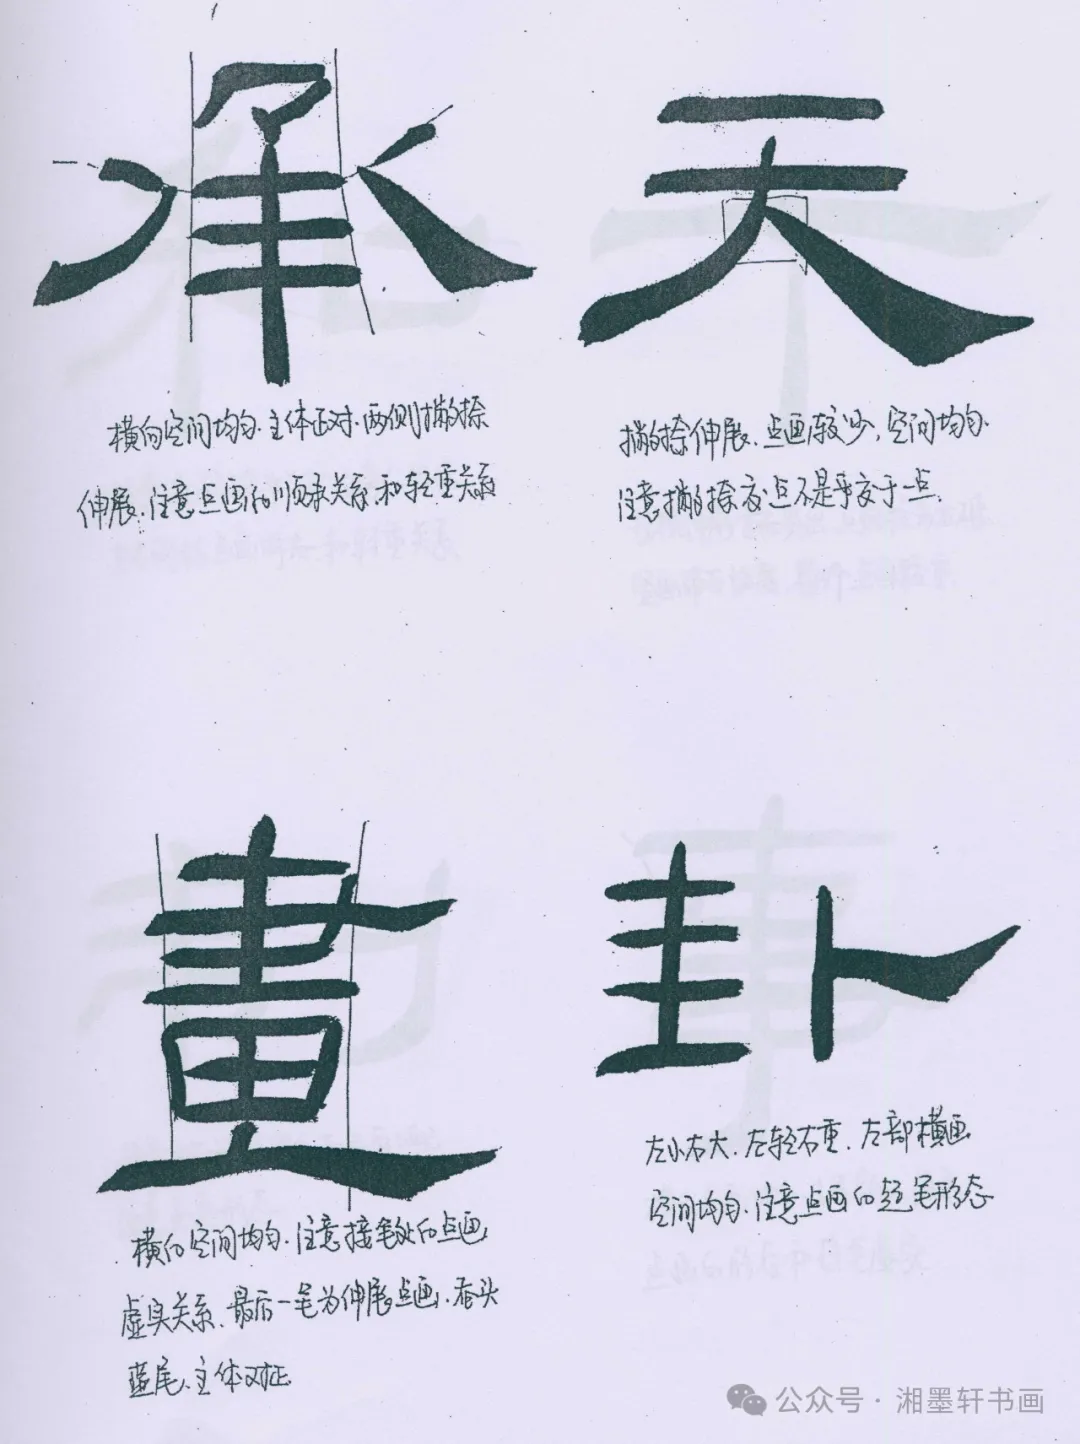 承 天
横向空间均匀.主体正对.两侧撇捺
伸展.注意点画的顺承关系和轻重关系
撇捺伸展.点画较少,空间均匀.
注意撇捺交点不是乎交于一点.
畫 卦
横向空间均匀.注意接笔处的点画
虚实关系.最后一笔为伸展点画.蚕头
燕尾.主体对正
左小右大.左轻右重.左部横画
空间均匀.注意点画的起笔形态
公众号·湘墨轩书画